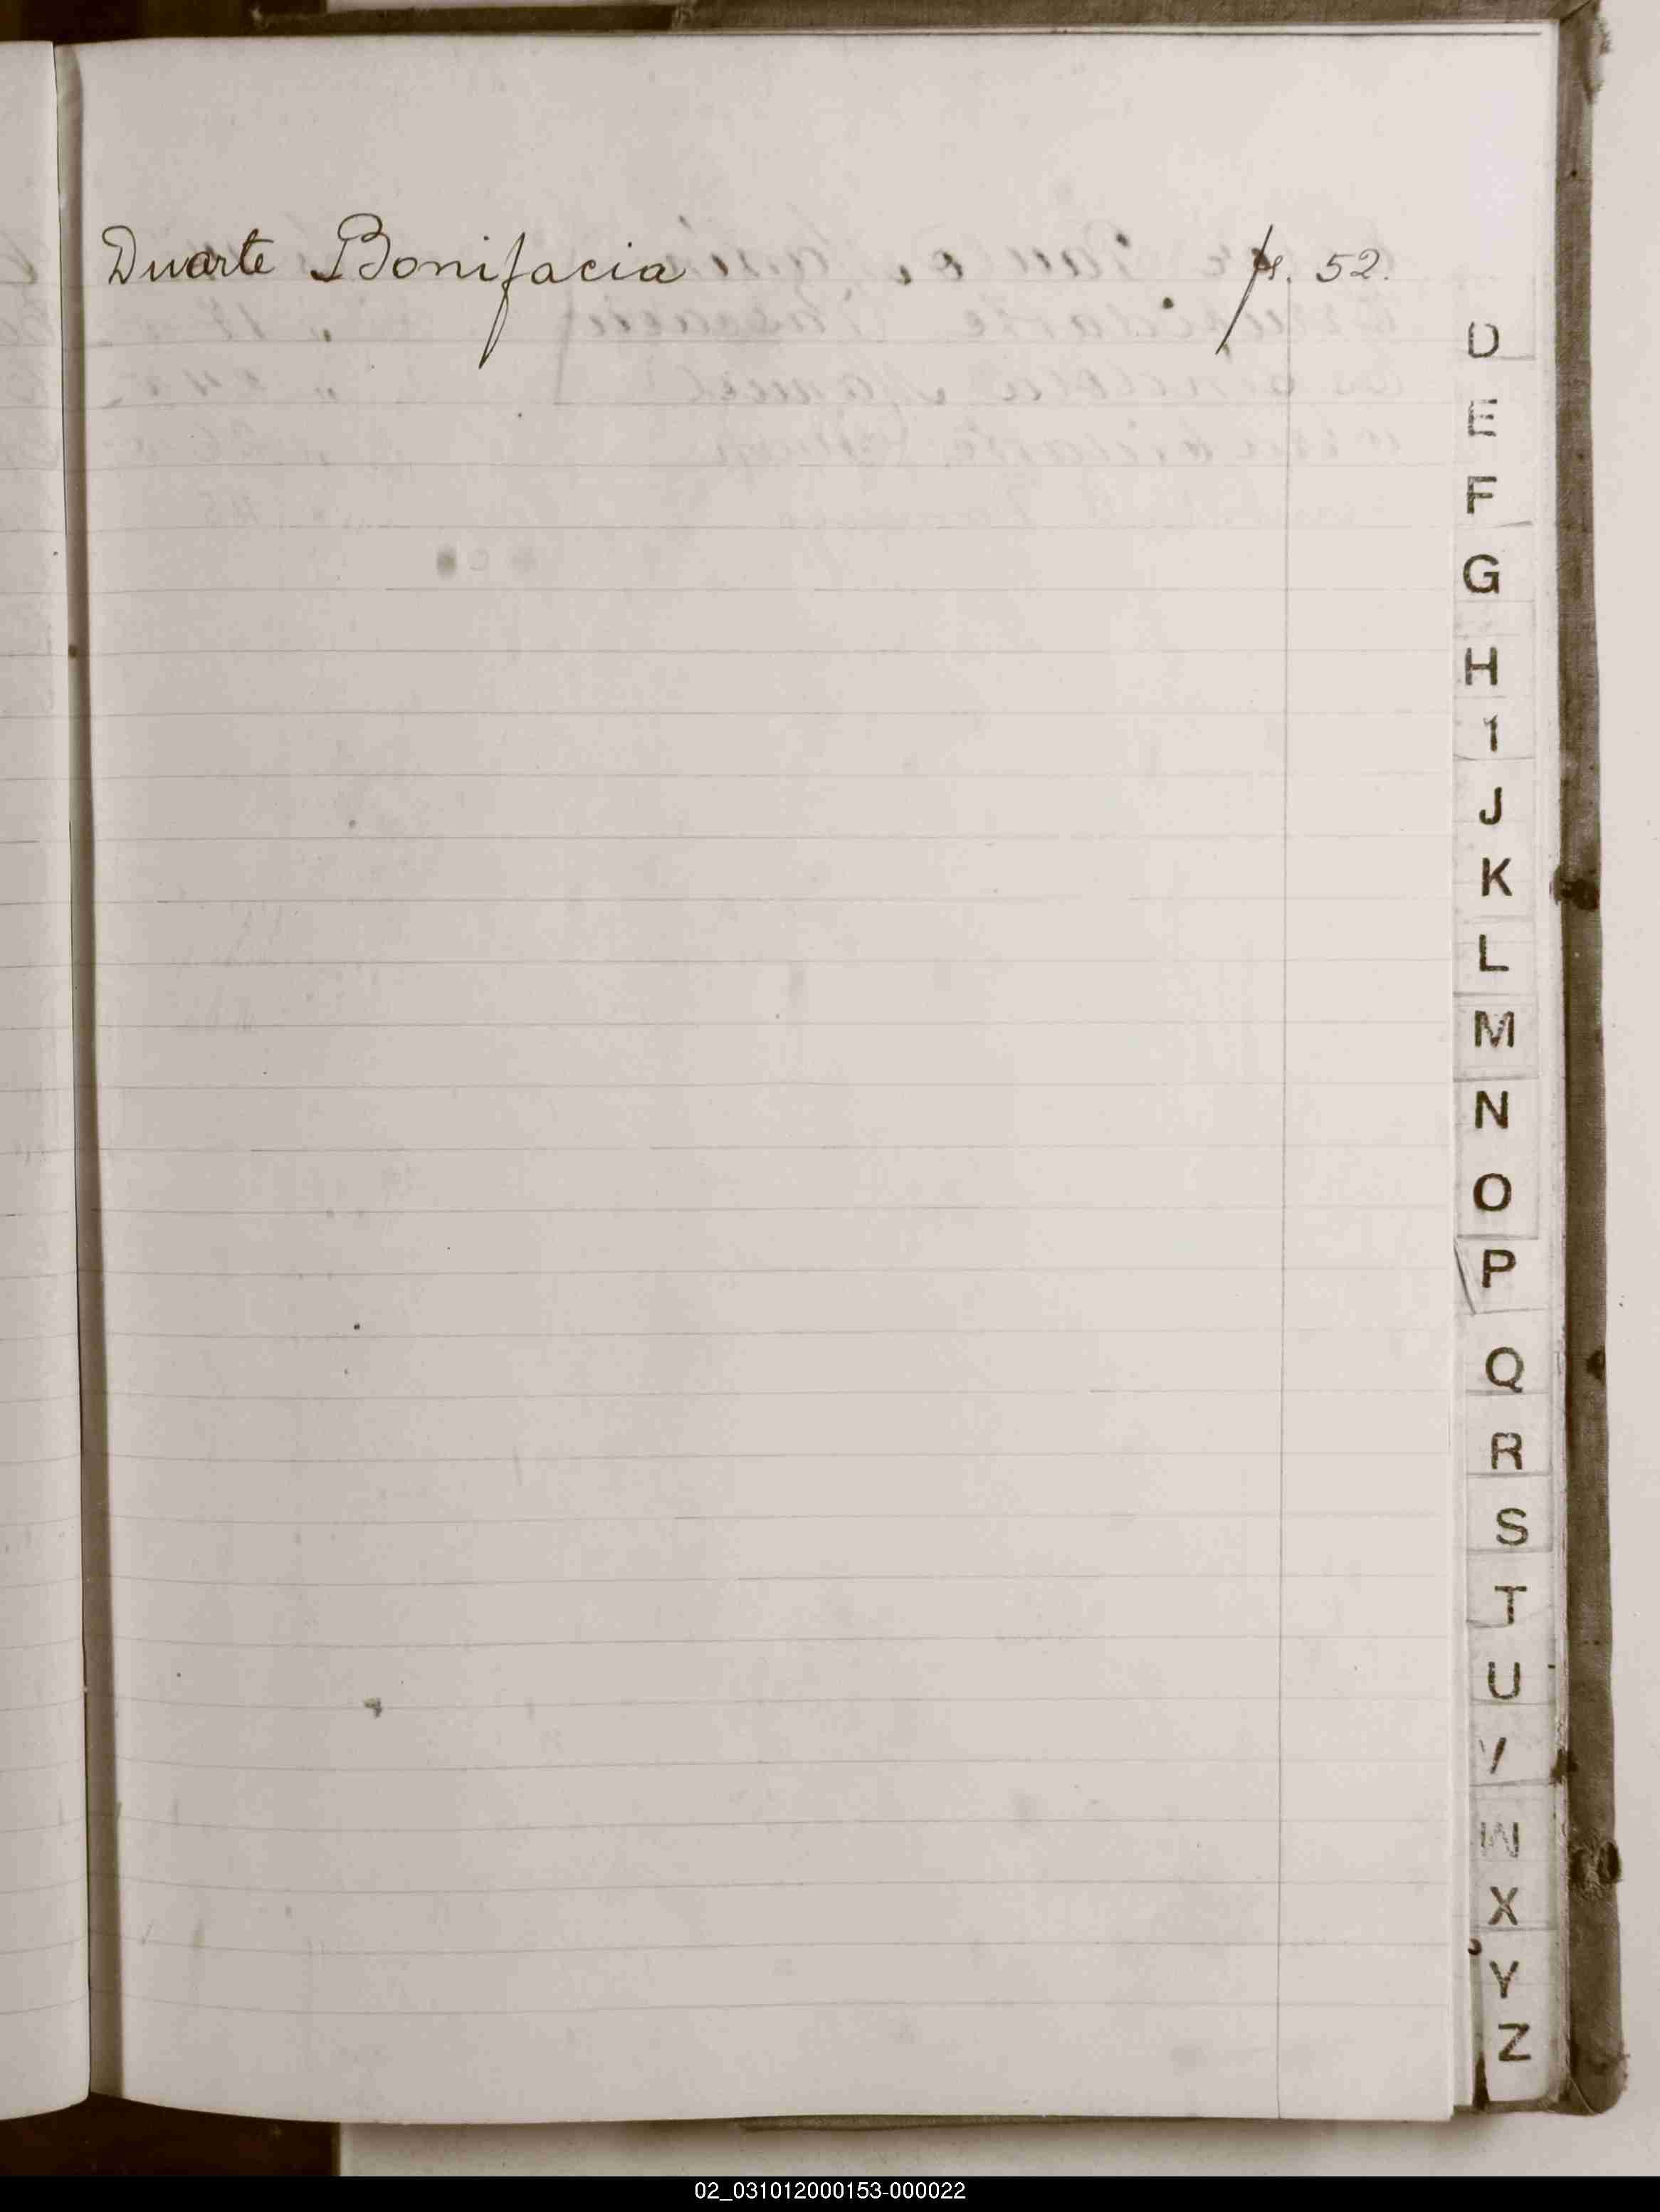 Duarte Bonifacia fs. 52.
D
E
F
G
H
I
J
K
L
M
N
O
P
Q
R
S
T
U
V
W
X
Y
Z
02_031012000153-000022